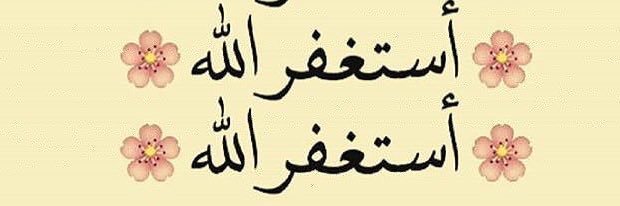 🌸 أستغفر الله 🌸
🌸 أستغفر الله 🌸